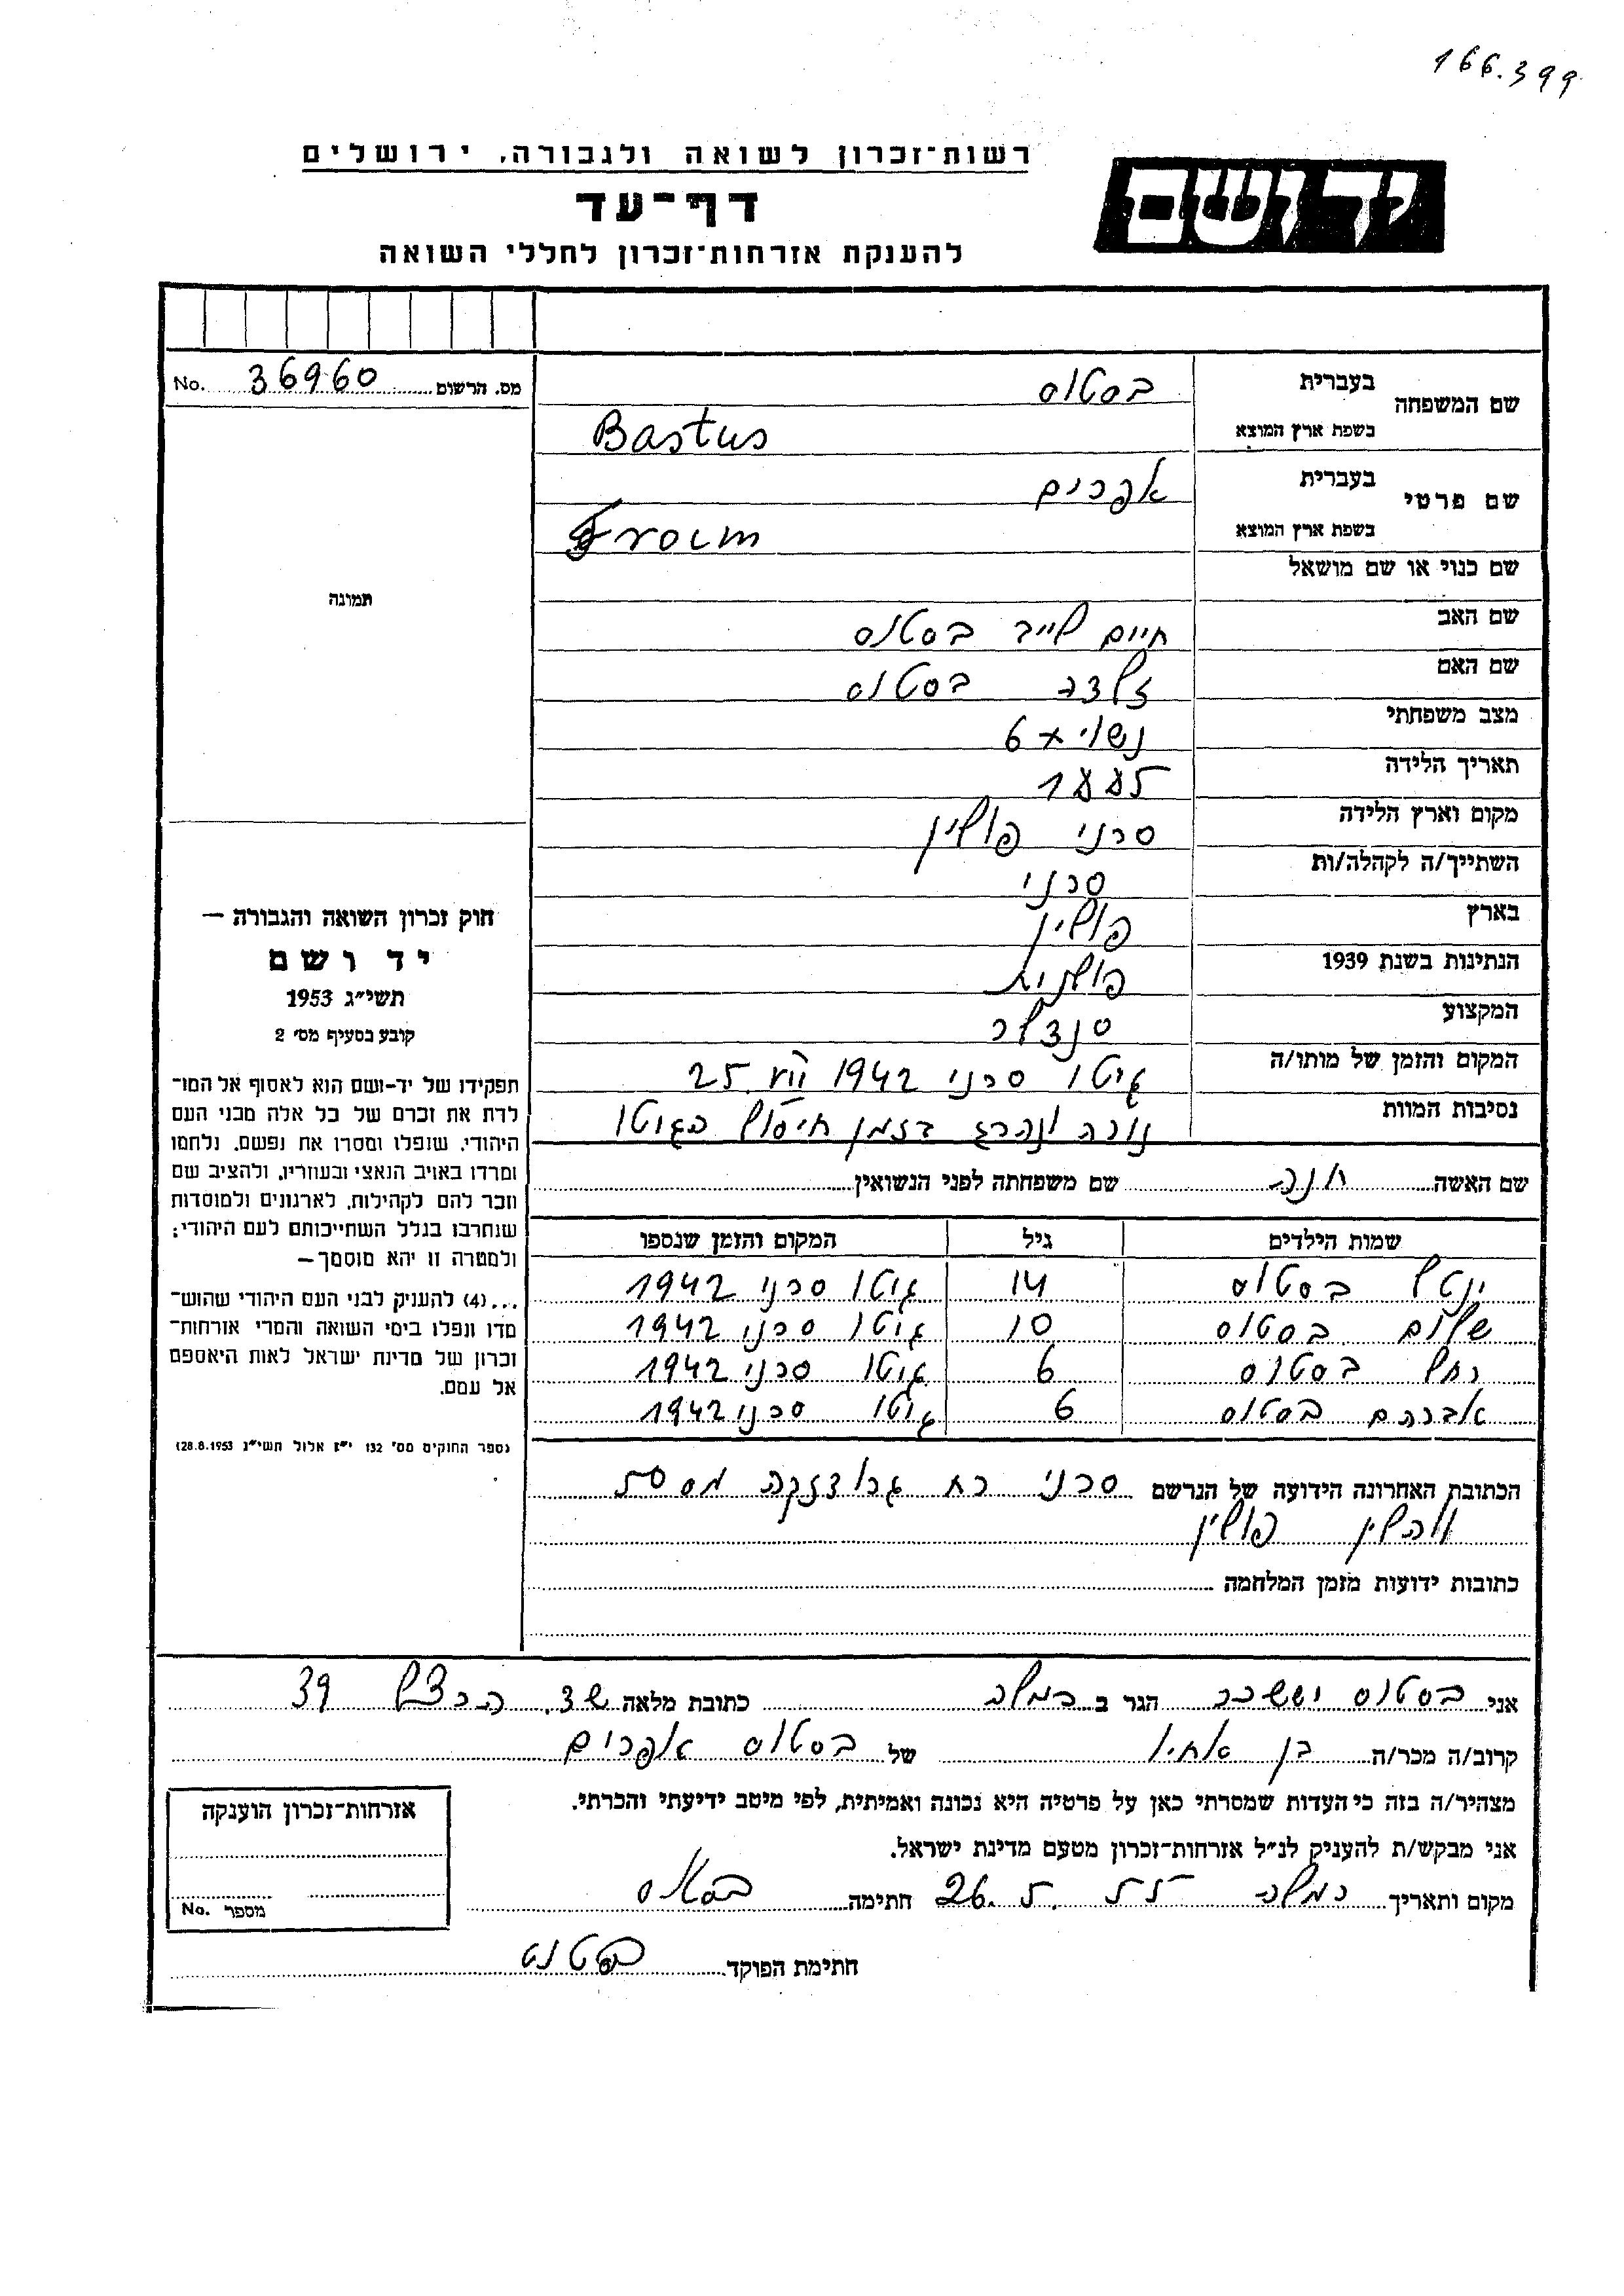 166.399
רשות־זכרון לשואה ולגבורה, ירושלים
דף־עד
להענקת אזרחות־זכרון לחללי השואה
יד ושם
מס. הרשום 36960 No.
שם המשפחה
בעברית בסטוס
בשפת ארץ המוצא Bastus
שם פרטי
בעברית אפרים
בשפת ארץ המוצא Froim
שם כנוי או שם מושאל
שם האב חיים לייב בסטוס
שם האם זלדה בסטוס
מצב משפחתי נשוי + 6
תאריך הלידה
מקום וארץ הלידה סרני פולין
השתייך/ה לקהלה/ות סרני
בארץ פולין
הנתינות בשנת 1939 פולנית
המקצוע סנדלר
המקום והזמן של מותו/ה גיטו סרני 1942
נסיבות המוות נורה ונהרג בזמן חיסול בגיטו
שם האשה חנה שם משפחתה לפני הנשואין
שמות הילדים גיל המקום והזמן שנספו
ינטל בסטוס 14 גיטו סרני 1942
שלום בסטוס 10 גיטו סרני 1942
רחל בסטוס 6 גיטו סרני 1942
אברהם בסטוס 6 גיטו סרני 1942
הכתובת האחרונה הידועה של הנרשם סרני רח
ווהלין פולין
כתובות ידועות מזמן המלחמה
תמונה
חוק זכרון השואה והגבורה —
יד ושם
תשי״ג 1953
קובע בסעיף מס׳ 2
תפקידו של יד-ושם הוא לאסוף אל המו־
לדת את זכרם של כל אלה מבני העם
היהודי, שנפלו ומסרו את נפשם, נלחמו
ומרדו באויב הנאצי ובעוזריו, ולהציב שם
וזכר להם לקהילות, לארגונים ולמוסדות
שנחרבו בגלל השתייכותם לעם היהודי;
ולמטרה זו יהא מוסמך—
...(4) להעניק לבני העם היהודי שהוש־
מדו ונפלו בימי השואה והמרי אזרחות־
זכרון של מדינת ישראל לאות היאספם
אל עמם.
(ספר החוקים מס׳ 132 י״ז אלול תשי״ג 28.8.1953)
אני בסטוס יששכר הגר ב רמלה כתובת מלאה שד. הרצל 39
קרוב/ה מכר/ה בן אחיו של בסטוס אפרים
מצהיר/ה בזה כי העדות שמסרתי כאן על פרטיה היא נכונה ואמיתית, לפי מיטב ידיעתי והכרתי.
אני מבקש/ת להעניק לנ״ל אזרחות־זכרון מטעם מדינת ישראל.
מקום ותאריך רמלה 26. חתימה בסטוס
חתימת הפוקד
אזרחות־זכרון הוענקה
מספר No.